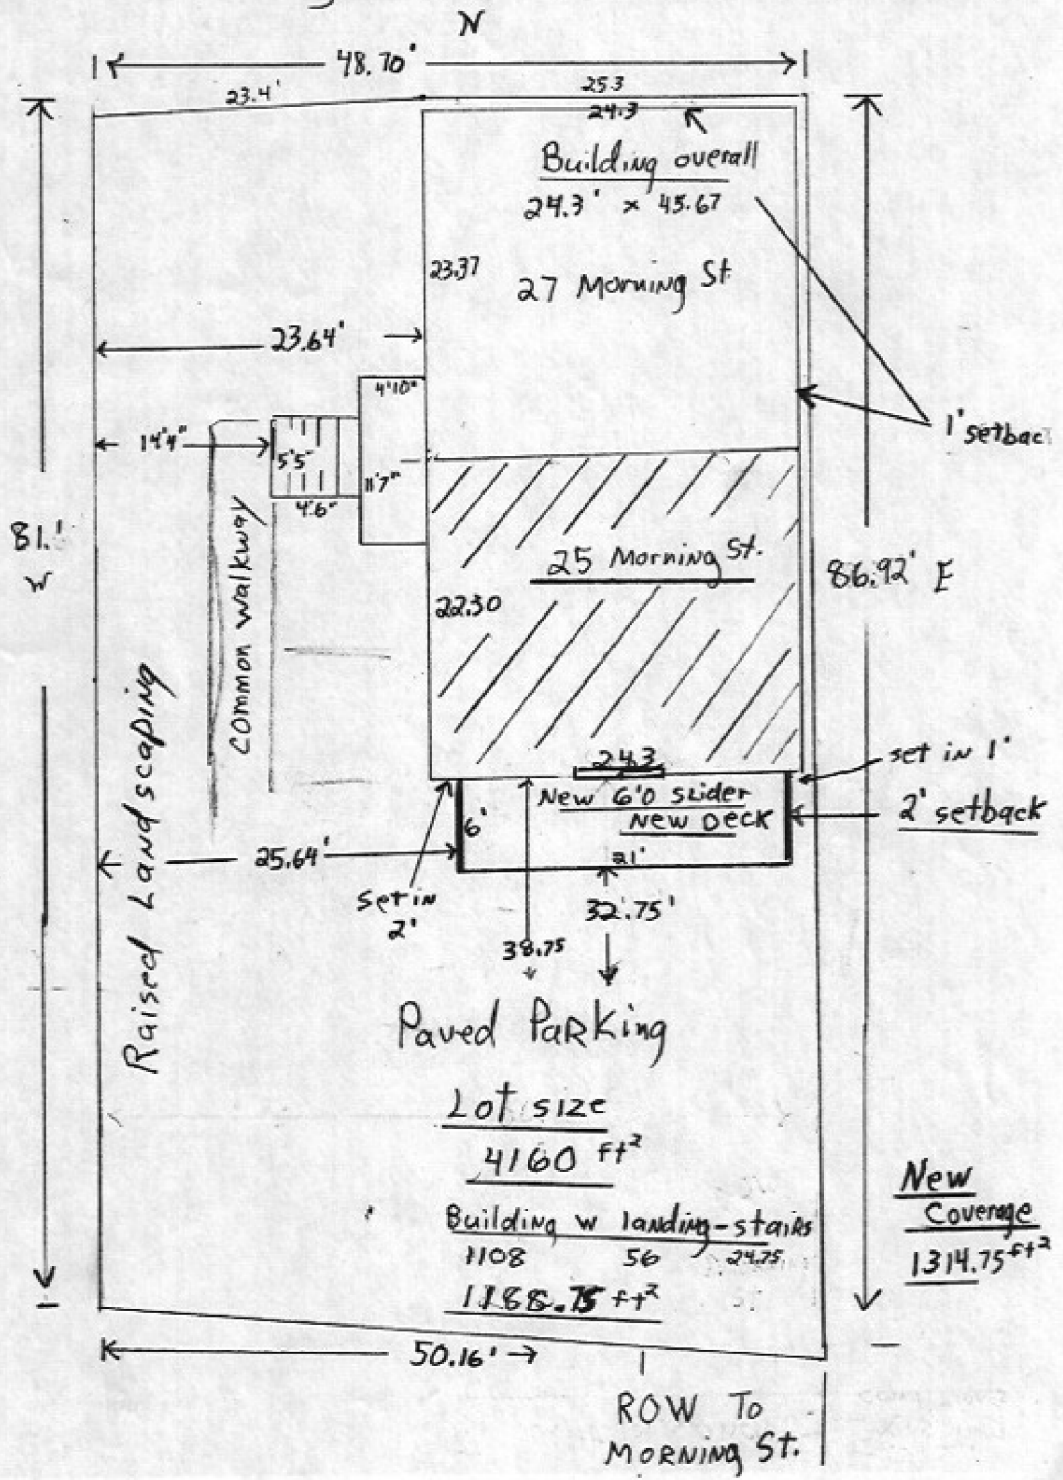 N
48.70'
23.4'
25.3
24.3
Building overall
24.3' x 45.67
23.37
27 Morning St
23.64'
4'10"
1' setbac
14'4"
5'5"
11'7"
4'6"
81.'
W
common walkway
25 Morning St.
86.92' E
22.30
Raised Landscaping
24.3
set in 1'
New 6'0 slider
New Deck
6'
2' setback
21'
25.64'
set in
2'
32'.75'
38.75
Paved Parking
Lot size
4160 ft²
Building w landing-stairs
1108 56 24.75
1188.75 ft²
New
Coverage
1314.75 ft²
50.16'
ROW To
Morning St.